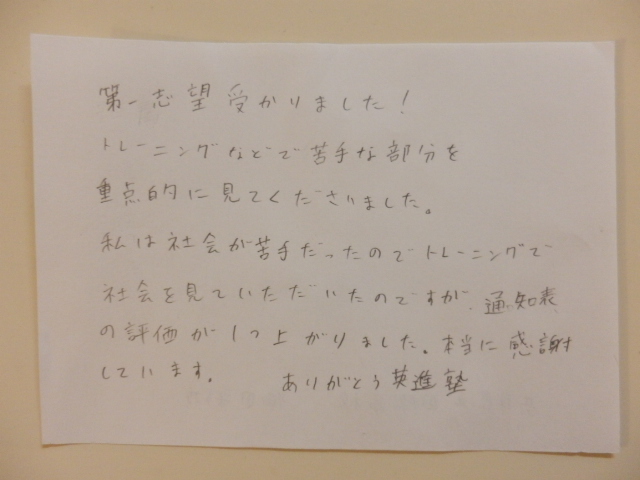 第一志望受かりました！
トレーニングなどで苦手な部分を
重点的に見てくださいました。
私は社会が苦手だったのでトレーニングで
社会を見ていただいたのですが、通知表
の評価が1つ上がりました。本当に感謝
しています。 ありがとう英進塾